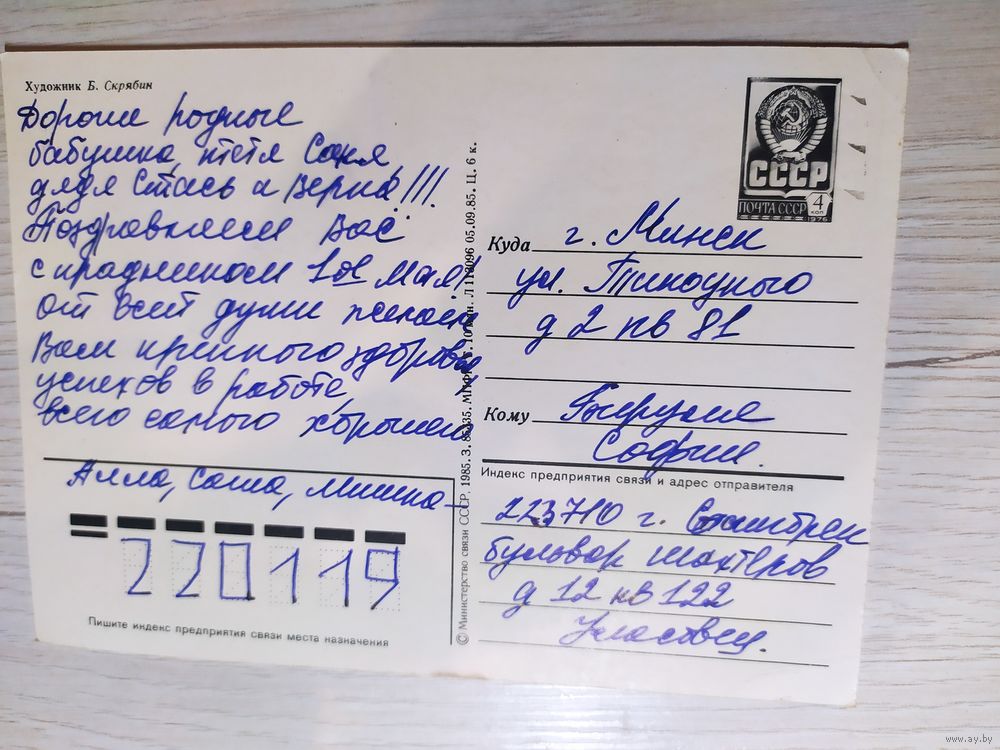 Художник Б. Скрябин
Дорогие родные
бабушка, тётя Соня
дядя Стась и Верна!!!
Поздравляем Вас
с праздником 1ое Мая!
от всей души желаем
Вам крепкого здоровья
успехов в работе,
всего самого хорошего
Алла, Саша, Мишка
220119
Пишите индекс предприятия связи места назначения
© Министерство связи СССР, 1985. З. 85-
05.09.85. Ц. 6 к.
СССР
ПОЧТА СССР
4
коп
1976
Куда г. Минск
ул. Тикоцкого
д 2 кв 81
Кому
Софии.
Индекс предприятия связи и адрес отправителя
223710 г.
бульвар шахтёров
д 12 кв 122
www.ay.by